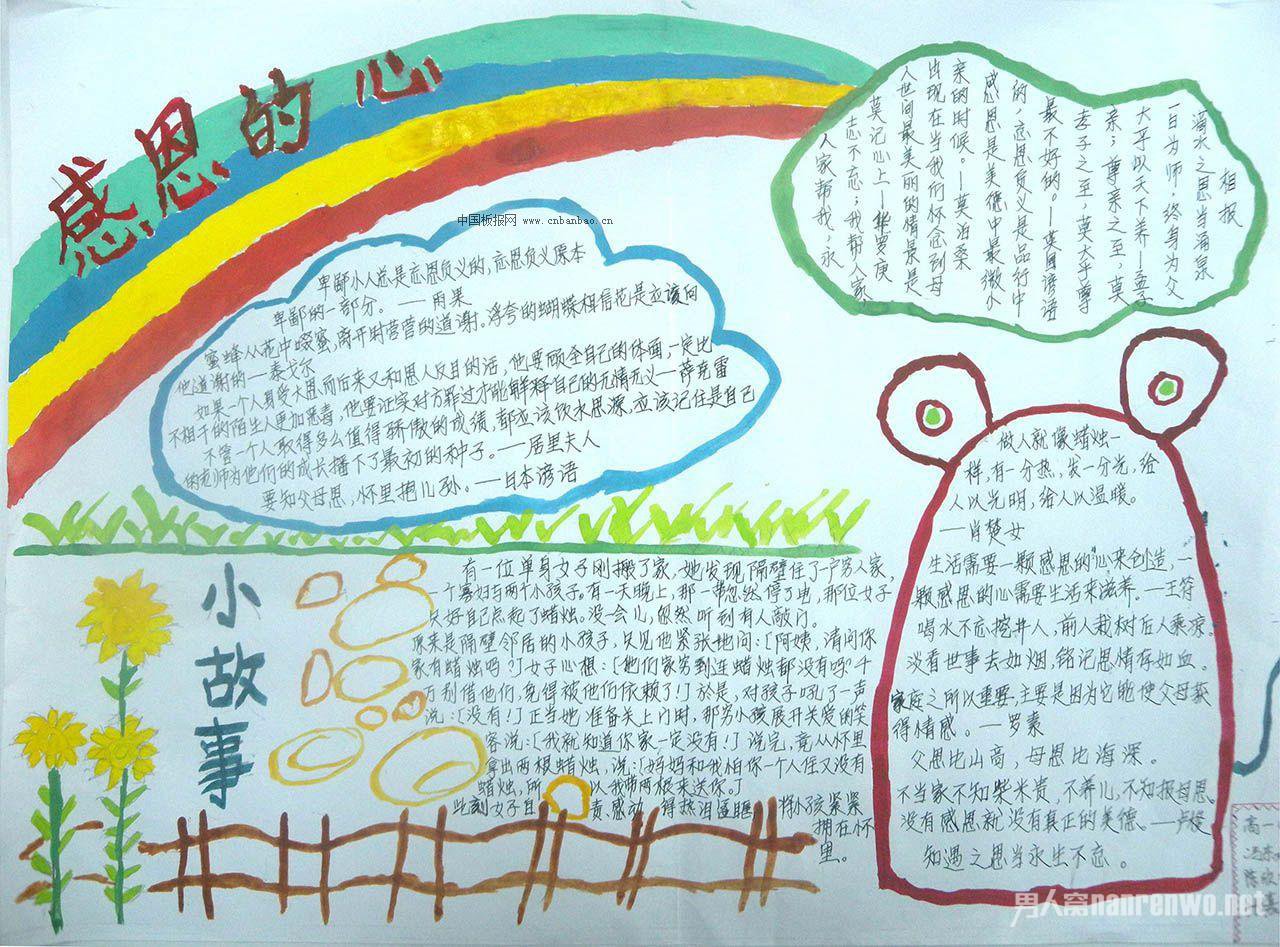 感恩的心
中国板报网 www.cnbanbao.cn
卑鄙小人总是忘恩负义的,忘恩负义原本
卑鄙的一部分。——雨果
蜜蜂从花中啜蜜,离开时营营的道谢。浮夸的蝴蝶相信花是应该向
他道谢的——泰戈尔
如果一个人身受大恩而后来又和恩人反目的话,他要顾全自己的体面,一定比
不相干的陌生人更加恶毒,他要证实对方罪过才能解释自己的无情无义—萨克雷
不管一个人取得多么值得骄傲的成绩,都应该饮水思源,应该记住是自己
的老师为他们的成长播下了最初的种子。——居里夫人
要知父母恩,怀里抱儿孙。——日本谚语
相报
滴水之恩当涌泉
一日为师,终身为父
大乎以天下养—孟子
亲;尊亲之至,莫
孝子之至,莫大乎尊
最不好的。—英国谚语
的,忘恩负义是品行中
感恩是美德中最微小
亲的时候。—莫泊桑
出现在当我们怀念到母
人世间最美丽的情景是
莫记心上—华罗庚
志不忘;我帮人家
人家帮我,永
做人就像蜡烛一
样,有一分热,发一分光,给
人以光明,给人以温暖。
——肖楚女
生活需要一颗感恩的"心来创造,一
颗感恩的心需要生活来滋养。—王符
喝水不忘挖井人,前人栽树后人乘凉。
淡看世事去如烟,铭记恩情存如血。
家庭之所以重要,主要是因为它能使父母获
得情感。—罗素
父恩比山高,母恩比海深。
不当家不知柴米贵,不养儿,不知报母恩。
没有感恩就没有真正的美德。——卢梭
知遇之恩当永生不忘。
小故事
有一位单身女子刚搬了家,她发现隔壁住了一户穷人家,
一个寡妇与两个小孩子。有一天晚上,那一带忽然停了电,那位女子
只好自己点起了蜡烛。没一会儿,忽然听到有人敲门。
原来是隔壁邻居的小孩子,只见他紧张地问:「阿姨,请问你
家有蜡烛吗?」女子心想:「他们家穷到连蜡烛都没有吗?千
万别借他们,免得被他们依赖了!」於是,对孩子吼了一声
说:「没有!」正当她准备关上门时,那穷小孩展开关爱的笑
容说:「我就知道你家一定没有!」说完,竟从怀里
拿出两根蜡烛,说:「妈妈和我怕你一个人住又没有
蜡烛,所以我带两根来送你。」
此刻女子自责感动得热泪盈眶,将小孩紧紧
拥在怀
里。
高一
男人窝nanrenwo.net